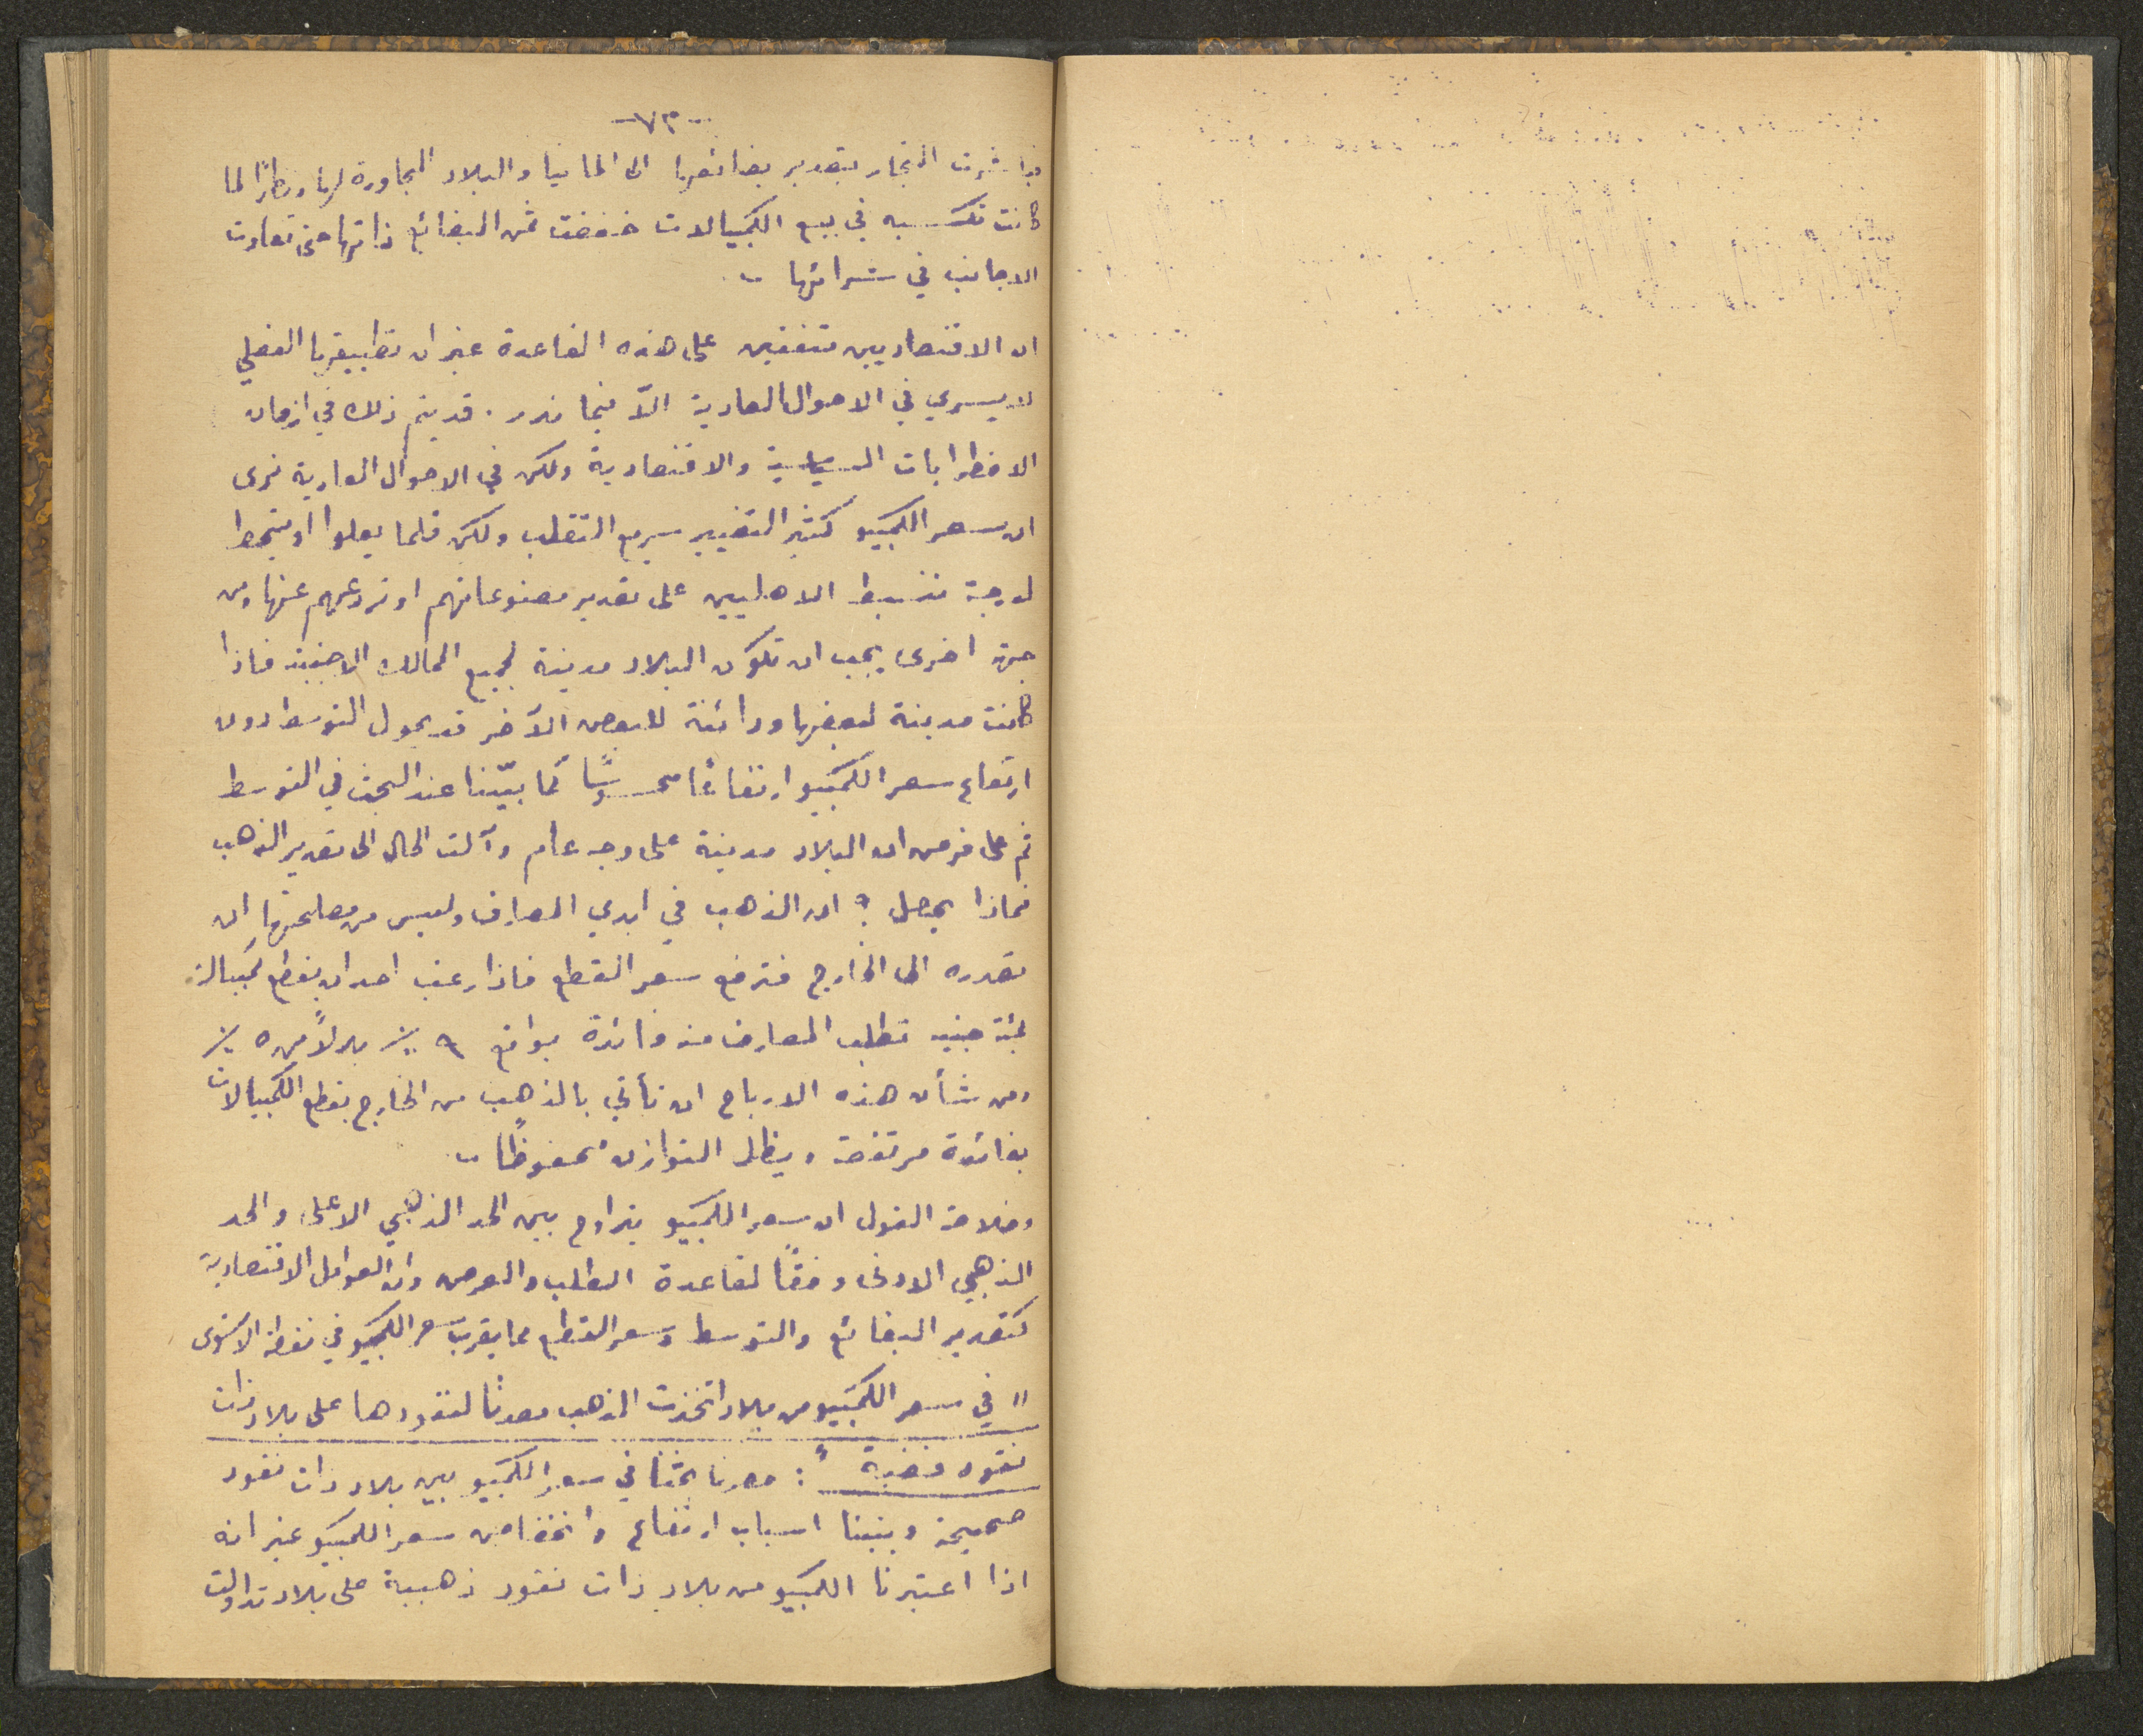 -٧٣-
فباشرت التجار بتصدير بضائعها الى المانيا والبلاد المجاورة لها ونظرًا لما
كانت تكسبه في بيع الكمبيالات خفضت ثمن البضائع ذاتها حتى تهاوت
الاجانب في شرائها .
ان الاقتصاديين متفقين على هذه القاعدة غير ان تطبيقها الفعلي
لا يسري في الاحوال العادية الاّ فيما ندر . قد يتم ذلك في ازمان
الاضطرابات السياسية والاقتصادية ولكن في الاحوال العادية نرى
ان سعر الكمبيو كثير التغيير سريع التقلب ولكن قلما يعلوا او ينحط
لدرجة تنشط الاهليين على تصدير مصنوعاتهم او تردعهم عنها ومن
جهة اخرى يجب ان تكون البلاد مدينة لجميع الممالك الاجنبية فاذا
كانت مدينة لبعضها ودائنة للبعض الآخر قد يحول التوسط دون
ارتفاع سعر الكمبيو ارتفاعًا محسوسًا كما بيّنا عند البحث في التوسط
ثم على فرض ان البلاد مدينة على وجه عام وآلت الحال الى تصدير الذهب
فماذا يحصل ؟ ان الذهب في ايدي المصارف وليس من مصلحتها ان
تصدره الى الخارج فترفع سعر القطع فاذا رغب احد ان يقطع كمبيالة
بمئة جنيه تطلب المصارف منه فائدة بواقع ٦ ٪ بدلاً من ٥ ٪
ومن شأن هذه الارباح ان تأتي بالذهب من الخارج بقطع الكمبيالات
بفائدة مرتفعة ويظل التوازن محفوظًا .
وخلاصة القول ان سعر الكمبيو يتراوح بين الحد الذهبي الاعلى والحد
الذهبي الادنى وفقًا لقاعدة الطلب والعرض وان العوامل الاقتصادية
كتصدير البضائع والتوسط وسعر القطع مما يقرب سعر الكمبيو في نقطة الاستوى
" في سعر الكمبيو من بلاد اتخذت الذهب معدنًا لنقودها على بلاد ذات
نقود فضية " : حصرنا بحثنا في سعر الكمبيو بين بلاد ذات نقود
صحيحة وبيّنا اسباب ارتفاع وانخفاض سعر الكمبيو غير انه
اذا اعتبرنا الكمبيو من بلاد ذات نقود ذهبية على بلاد تداولت